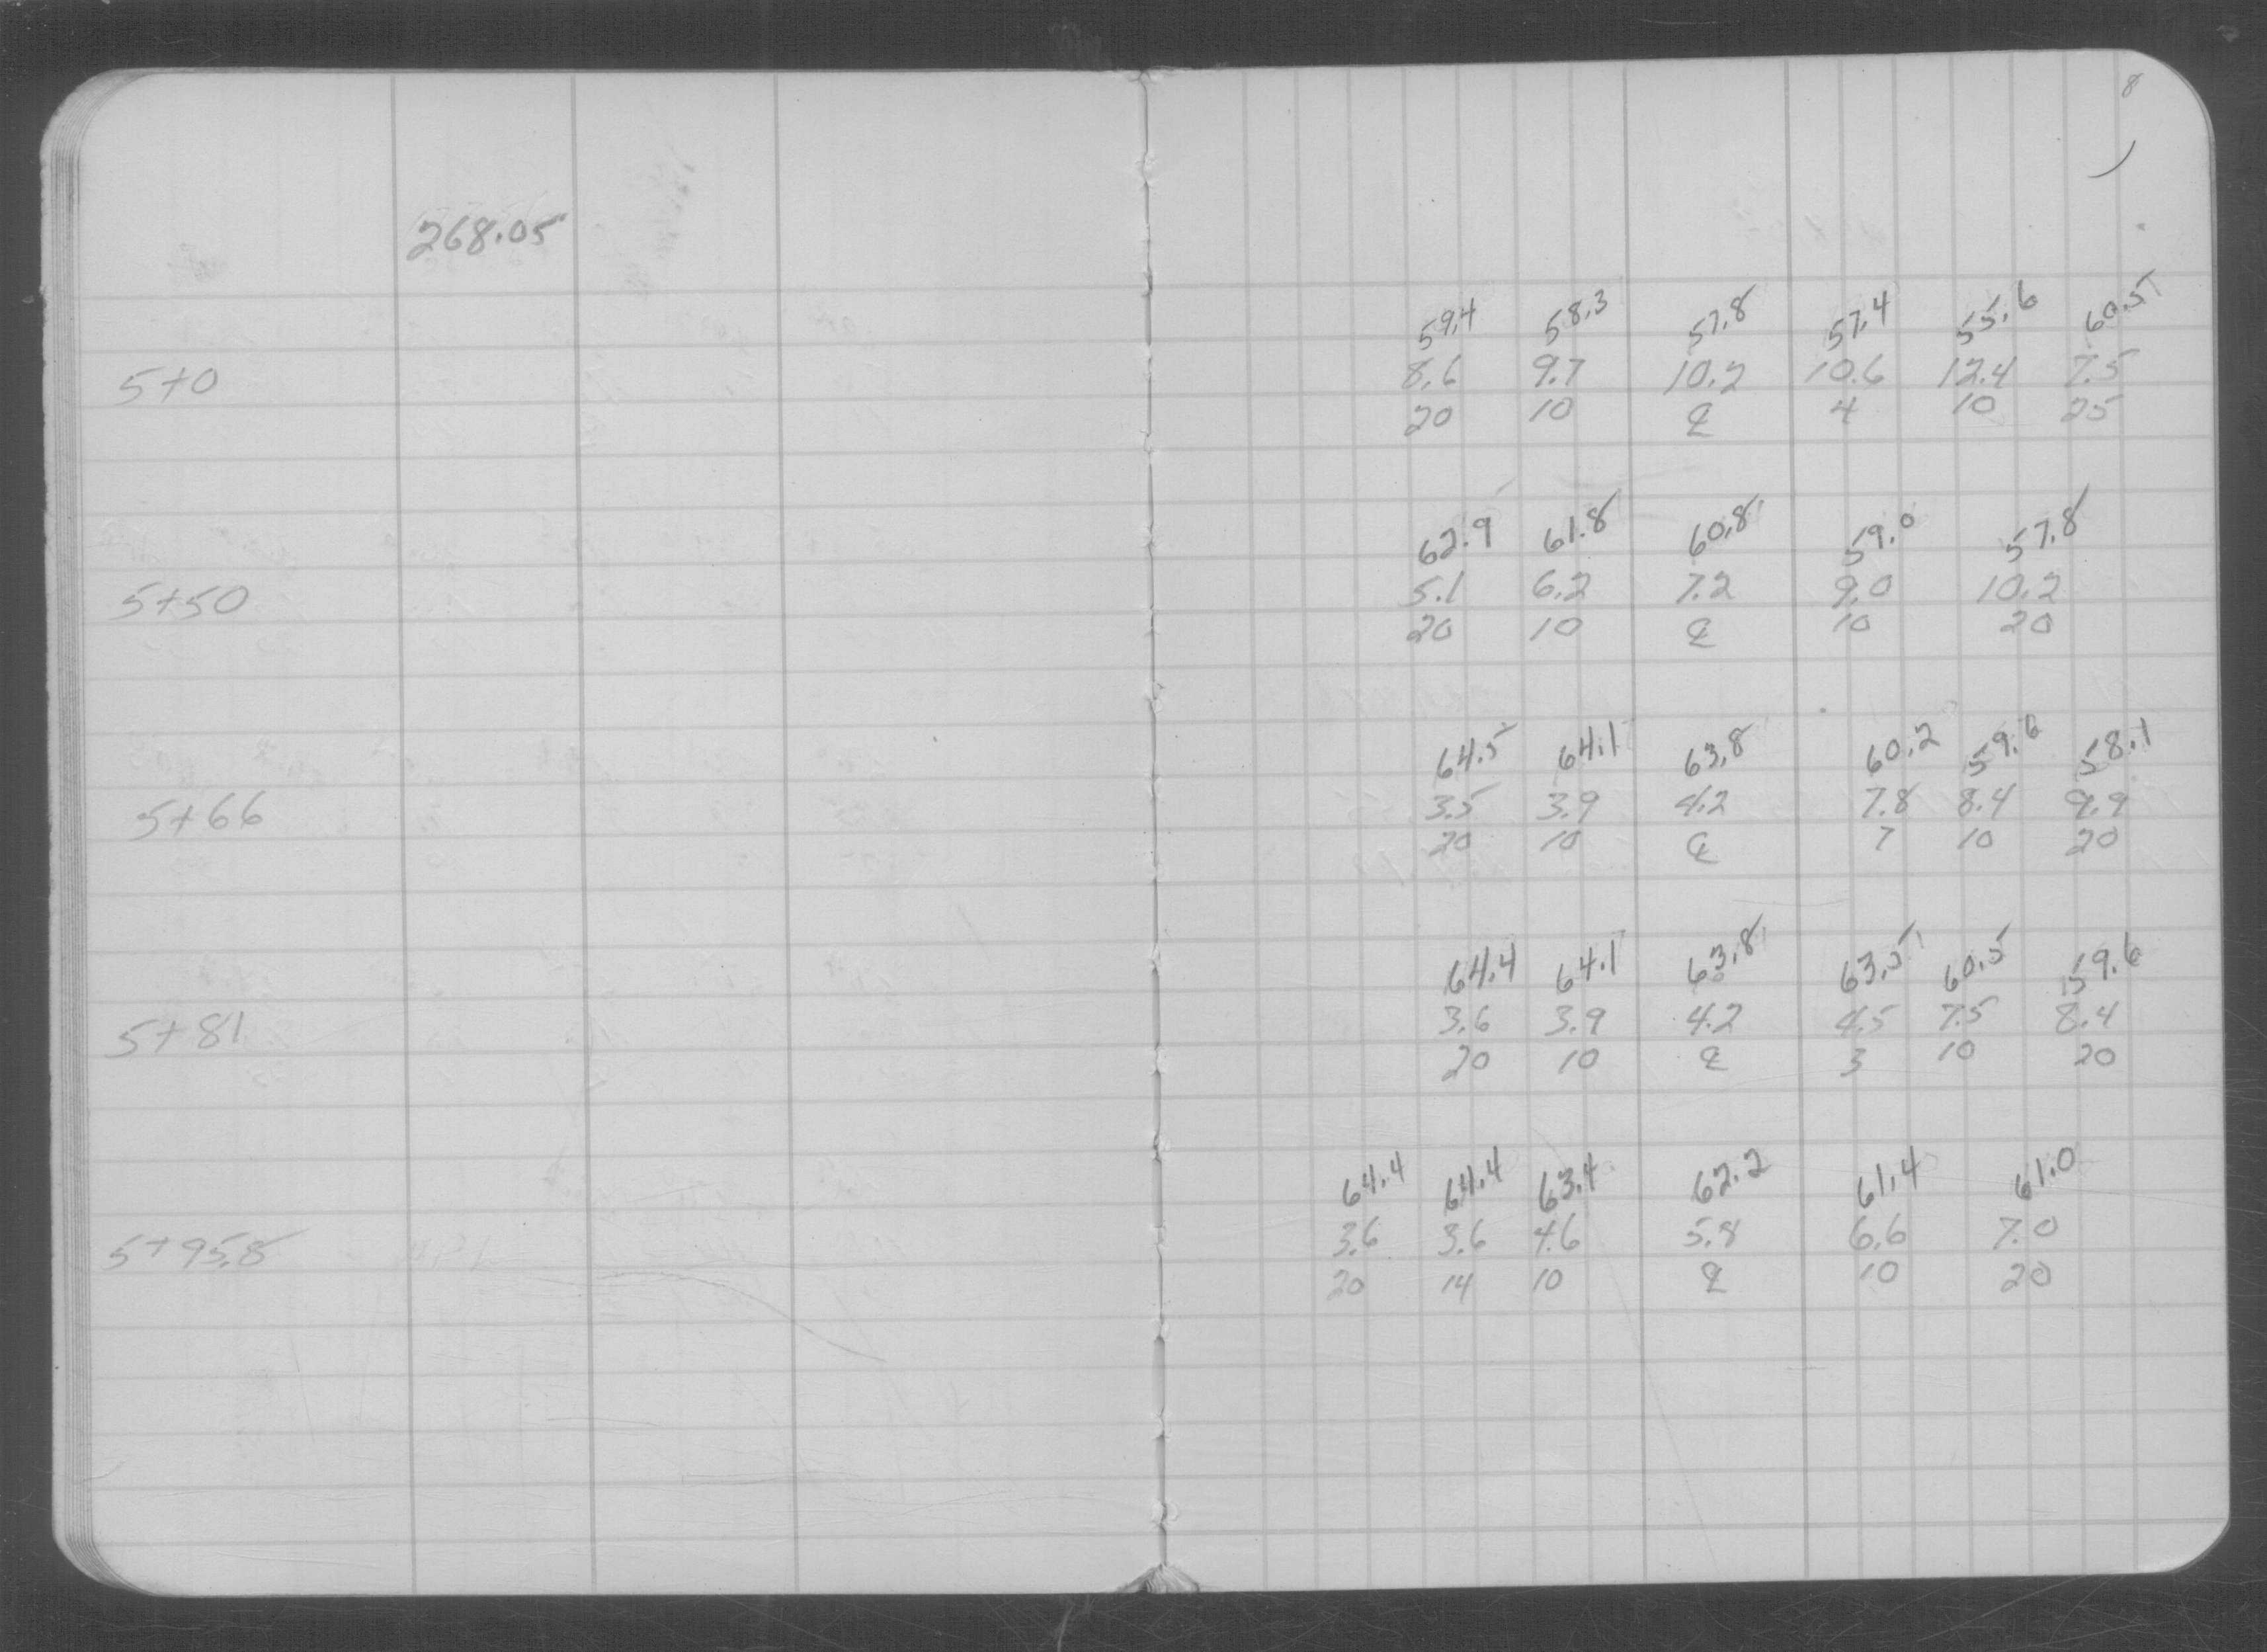 8
268.05
59.4 58.3 57.8 57.4 55.6 60.5
5+0 8.6 9.7 10.2 10.6 12.4 7.5
20 10 ℄ 4 10 25
62.9 61.8 60.8 59.0 57.8
5+50 5.1 6.2 7.2 9.0 10.2
20 10 ℄ 10 20
64.5 64.1 63.8 60.2 59.6 58.1
5+66 3.5 3.9 4.2 7.8 8.4 9.9
20 10 ℄ 7 10 20
64.4 64.1 63.8 63.5 60.5 59.6
5+81 3.6 3.9 4.2 4.5 7.5 8.4
20 10 ℄ 3 10 20
64.4 64.4 63.4 62.2 61.4 61.0
5+95.8 3.6 3.6 4.6 5.8 6.6 7.0
20 14 10 ℄ 10 20